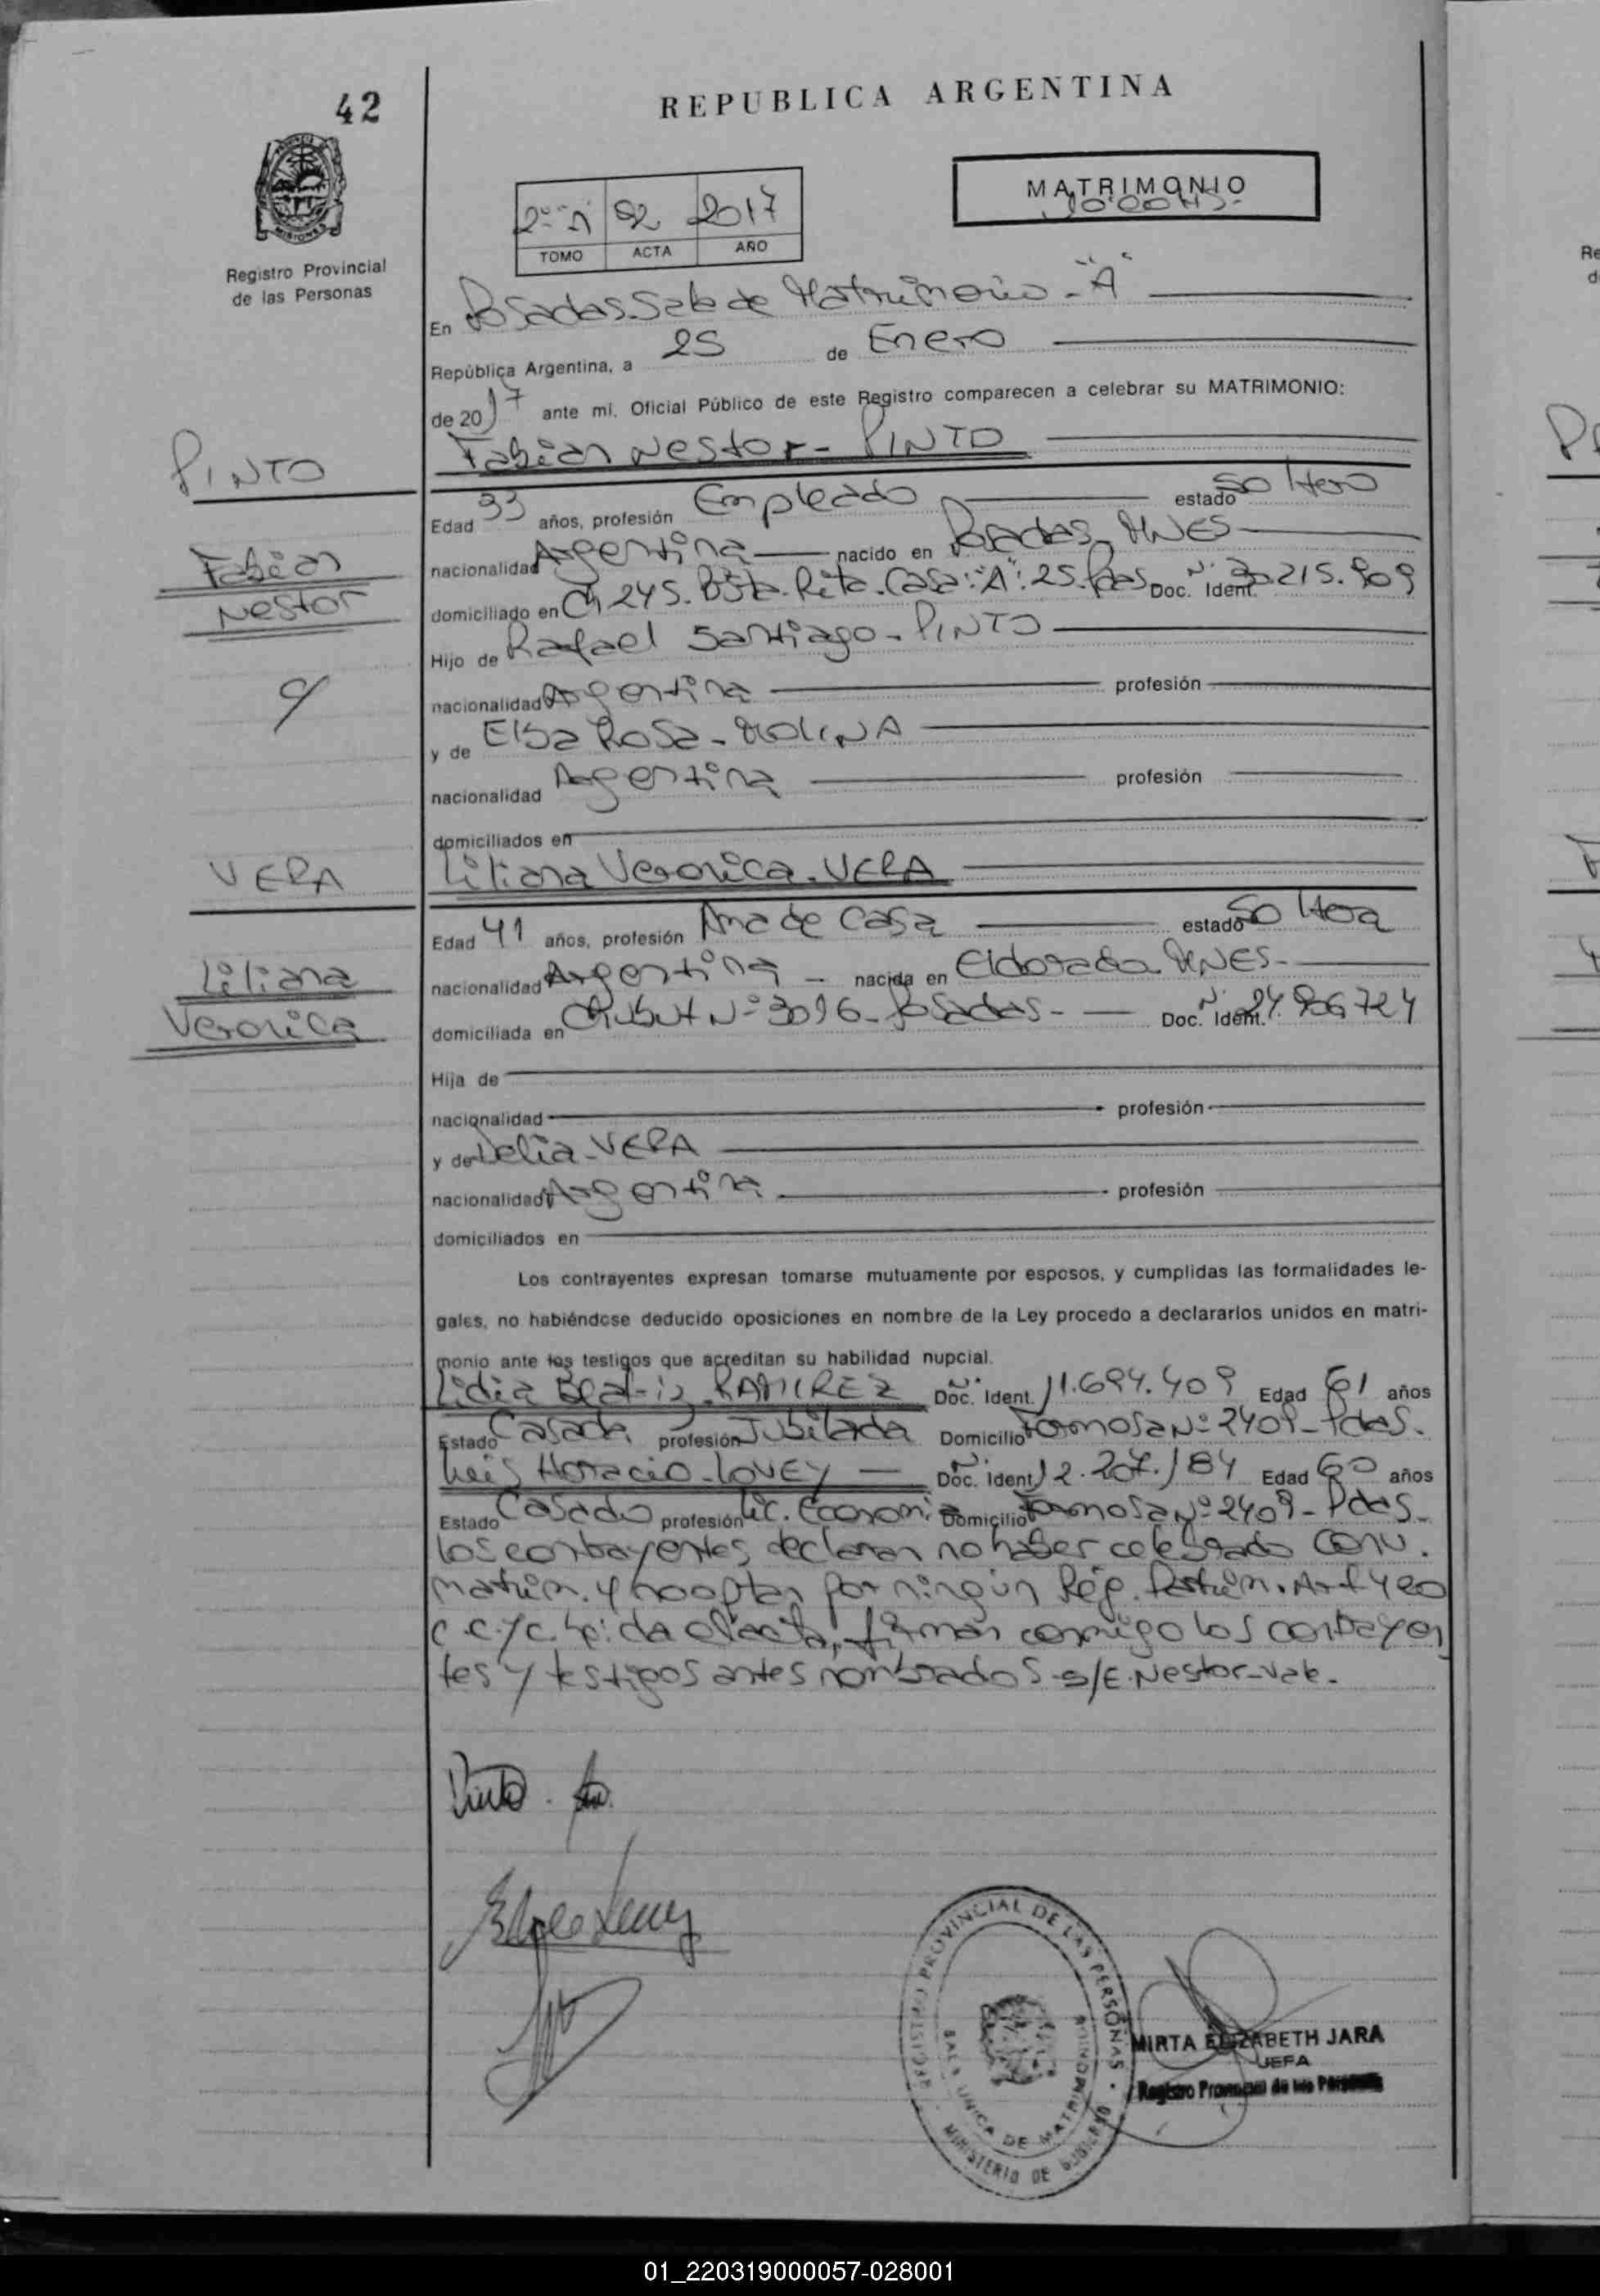 42
REPUBLICA ARGENTINA
MATRIMONIO
2º "A" 92 2017
TOMO ACTA AÑO
Registro Provincial
de las Personas
En Posadas. Sala de Matrimonio - "A"
República Argentina, a 25 de Enero
de 2017 ante mí, Oficial Público de este Registro comparecen a celebrar su MATRIMONIO:
PINTO
Fabian Nestor - PINTO
Edad 33 años, profesión Empleado estado Soltero
Fabian
Nestor
nacionalidad Argentina nacido en Posadas, MNES
domiciliado en Ch 245. Bª Sta. Rita. Casa: "A": 25. Pdas Doc. Ident. Nº 30.215.909
Hijo de Rafael Santiago - PINTO
nacionalidad Argentina profesión
y de Elsa Rosa - MOLINA
nacionalidad Argentina profesión
domiciliados en
VERA
Liliana Veronica. VERA
Edad 41 años, profesión Ama de Casa estado Soltera
Liliana
Veronica
nacionalidad Argentina - nacida en Eldorado MNES-
domiciliada en Chubut Nº 3096 - Posadas - Doc. Ident. Nº 24.906724
Hija de
nacionalidad profesión
y de Delia - VERA
nacionalidad Argentina profesión
domiciliados en
Los contrayentes expresan tomarse mutuamente por esposos, y cumplidas las formalidades le-
gales, no habiéndose deducido oposiciones en nombre de la Ley procedo a declararlos unidos en matri-
monio ante los testigos que acreditan su habilidad nupcial.
Lidia Beatriz. RAMIREZ Doc. Ident. Nº 11.694.409 Edad 61 años
Estado Casada profesión Jubilada Domicilio Formosa Nº 2409 - Pdas.
Luis Horacio - LOVEY Doc. Ident. Nº 12.207.184 Edad 60 años
Estado Casado profesión Lic. Economia Domicilio Formosa Nº 2409 - Pdas.
los contrayentes declaran no haber celebrado Conv.
Matrim. y no optan por ningún Rég. Patrim. Art 420
C.C.yC. Leida el acta, firman conmigo los contrayen
tes y testigos antes nombrados - s/E. Nestor - Vale.
REGISTRO PROVINCIAL DE LAS PERSONAS
SALA UNICA DE MATRIMONIO
MINISTERIO DE GOBIERNO
MIRTA ELIZABETH JARA
JEFA
Registro Provincial de las Personas
01_220319000057-028001